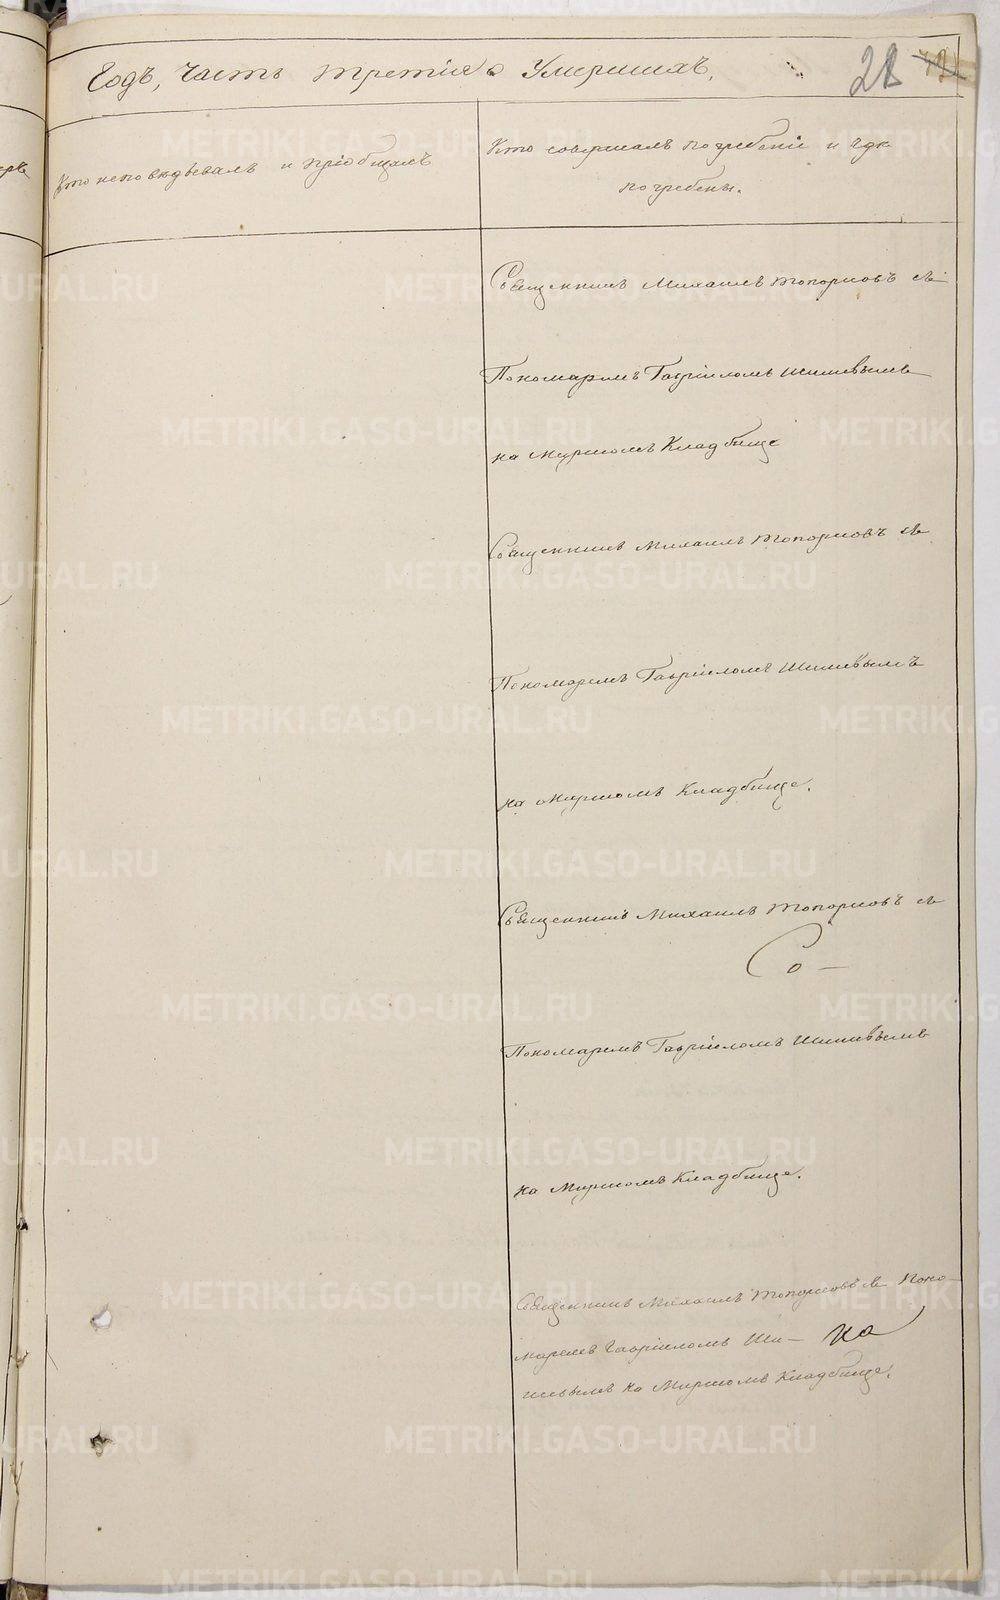 Годъ, часть третія о Умершихъ,
28
Кто исповѣдывалъ и пріобщалъ
Кто совершалъ погребеніе и гдѣ
погребены.
Священникъ Михаилъ Топорковъ съ
Пономаремъ Гавріиломъ Шишевымъ
на мірскомъ Кладбище
Священникъ Михаилъ Топорковъ съ
Пономаремъ Гавріиломъ Шишевымъ
на мірскомъ Кладбище.
Священникъ Михаилъ Топорковъ съ
Со-
Пономаремъ Гавріиломъ Шишевымъ
на Мирскомъ Кладбище.
Священникъ Михаилъ Топорковъ съ Поно-
маремъ Гавріиломъ Ши- ка
шевымъ на Мирскомъ Кладбище.
METRIKI.GASO-URAL.RU